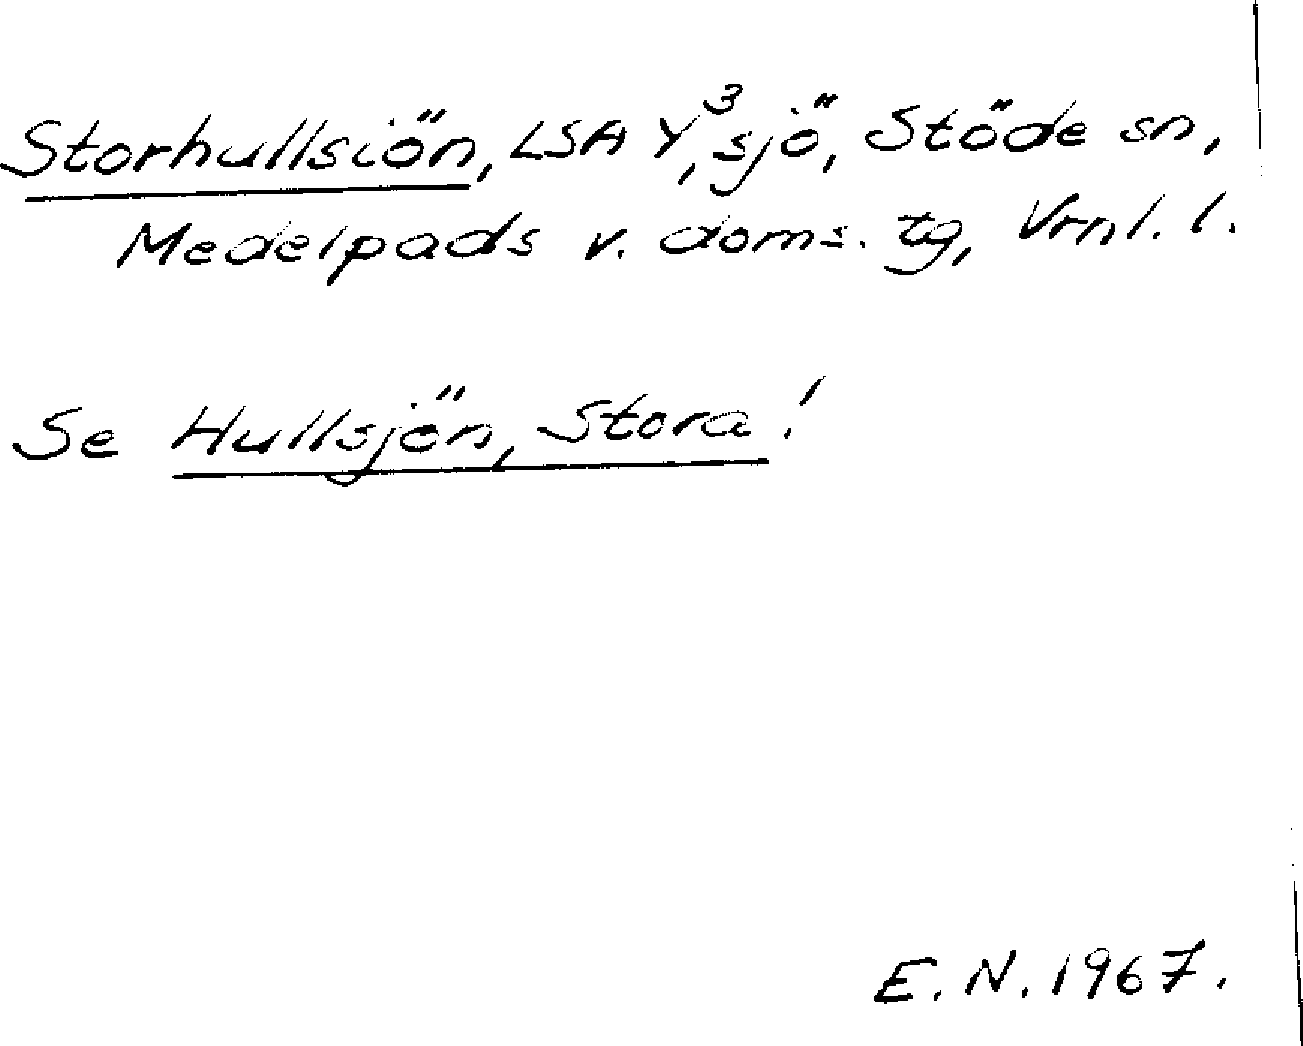 Storhullsiön, LSA Y³, sjö, Stöde sn,
Medelpads v. doms. tg, Vrnl. l.
Se Hullsjön, Stora!
E. N. 1967.